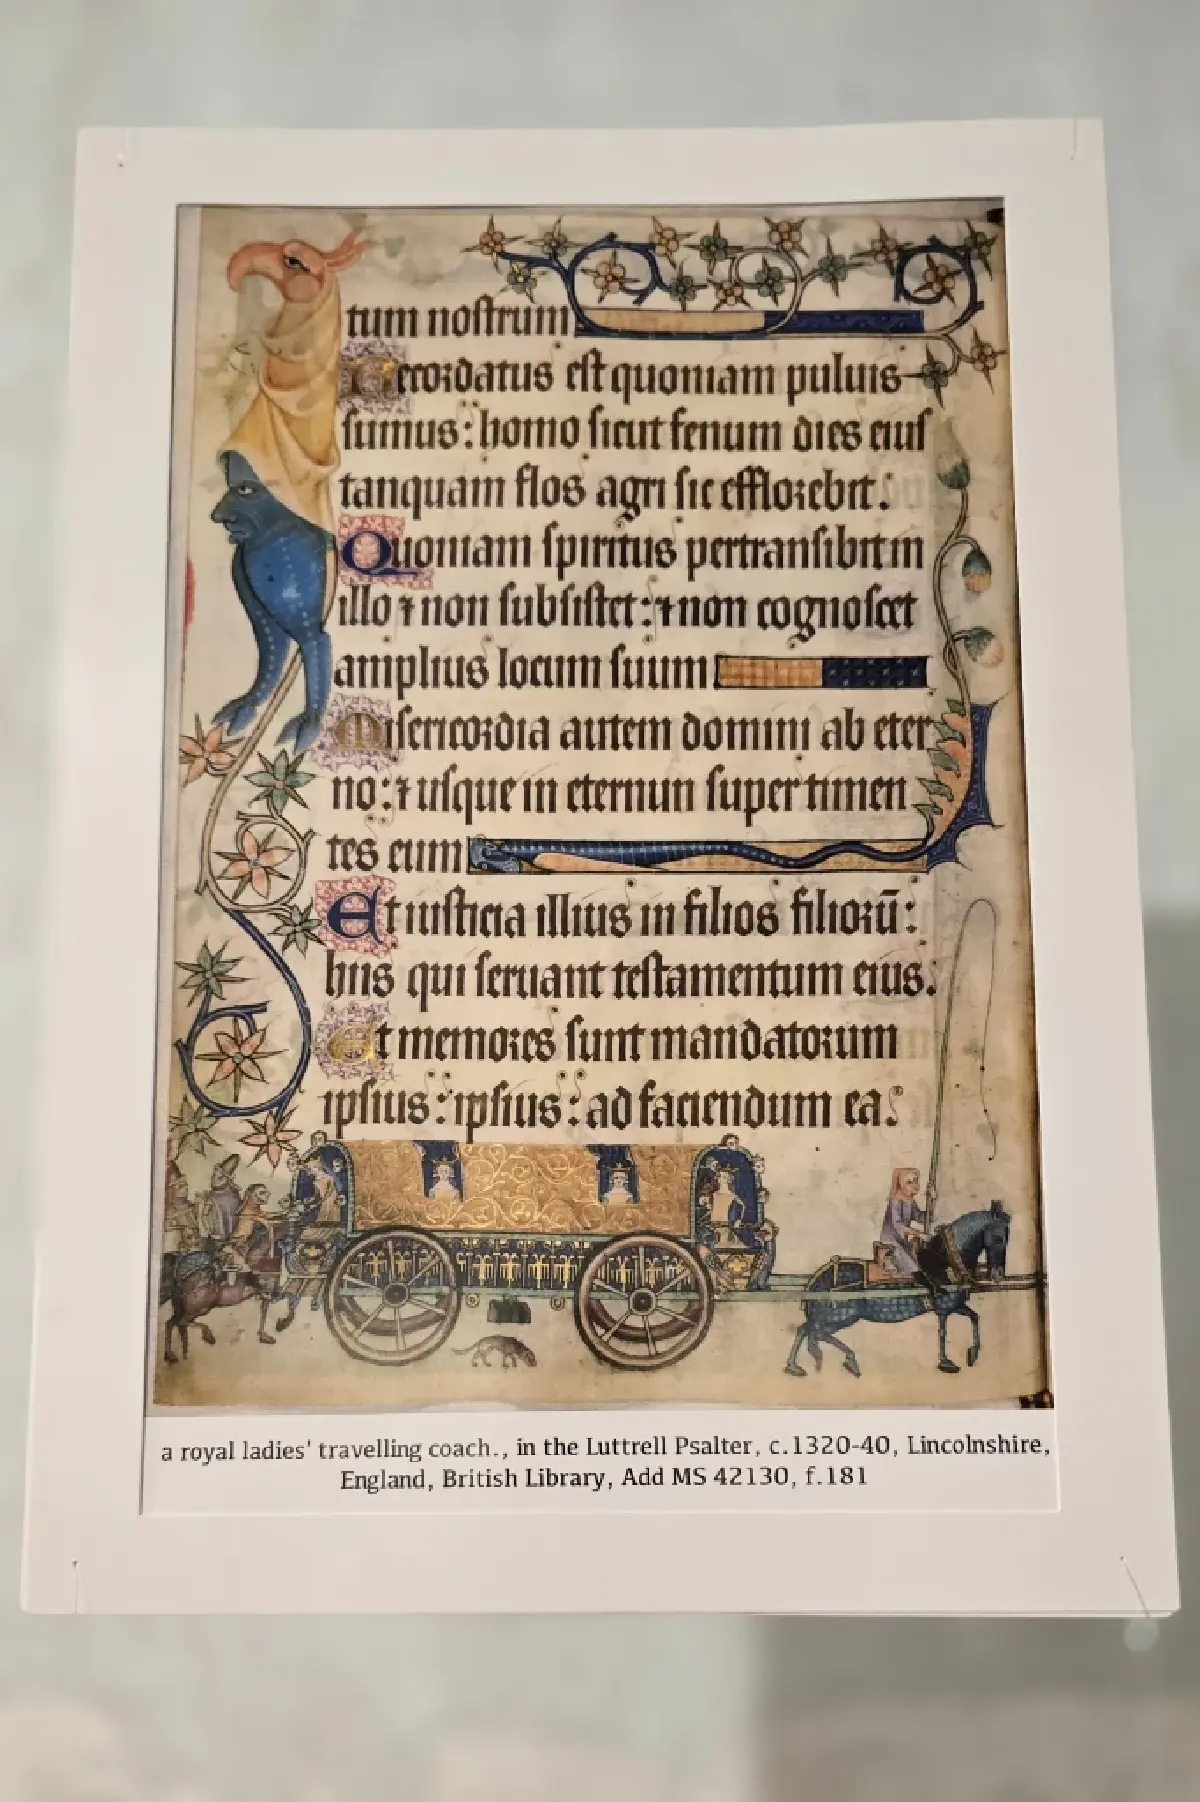 tum nostrum
Recordatus est quoniam puluis
sumus: homo sicut fenum dies eius
tanquam flos agri sic efflorebit:
Quoniam spiritus pertransibit in
illo ⁊ non subsistet: ⁊ non cognoscet
amplius locum suum
Misericordia autem domini ab eter
no: ⁊ usque in eternun super timen
tes eum
Et iusticia illius in filios filiorū:
hiis qui seruant testamentum eius.
Et memores sunt mandatorum
ipsius: ipsius: ad faciendum ea:
a royal ladies' travelling coach., in the Luttrell Psalter, c.1320-40, Lincolnshire,
England, British Library, Add MS 42130, f.181